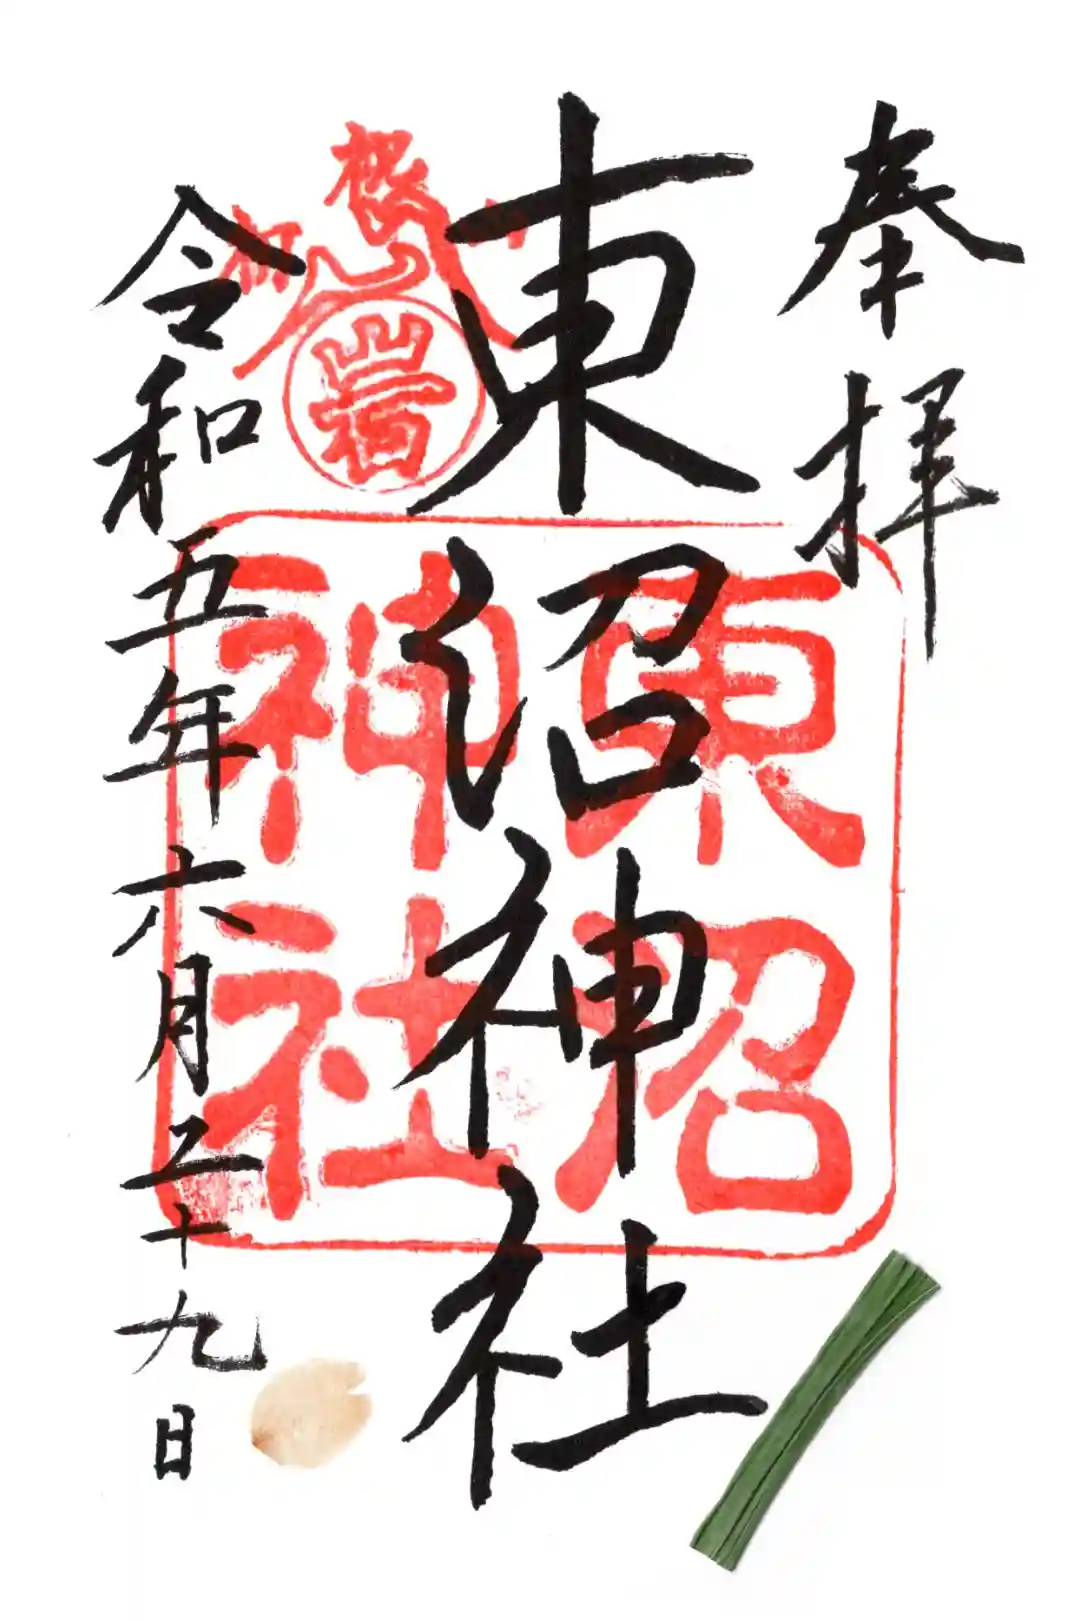 奉拝
東沼神社
令和五年六月二十九日
東沼
神社